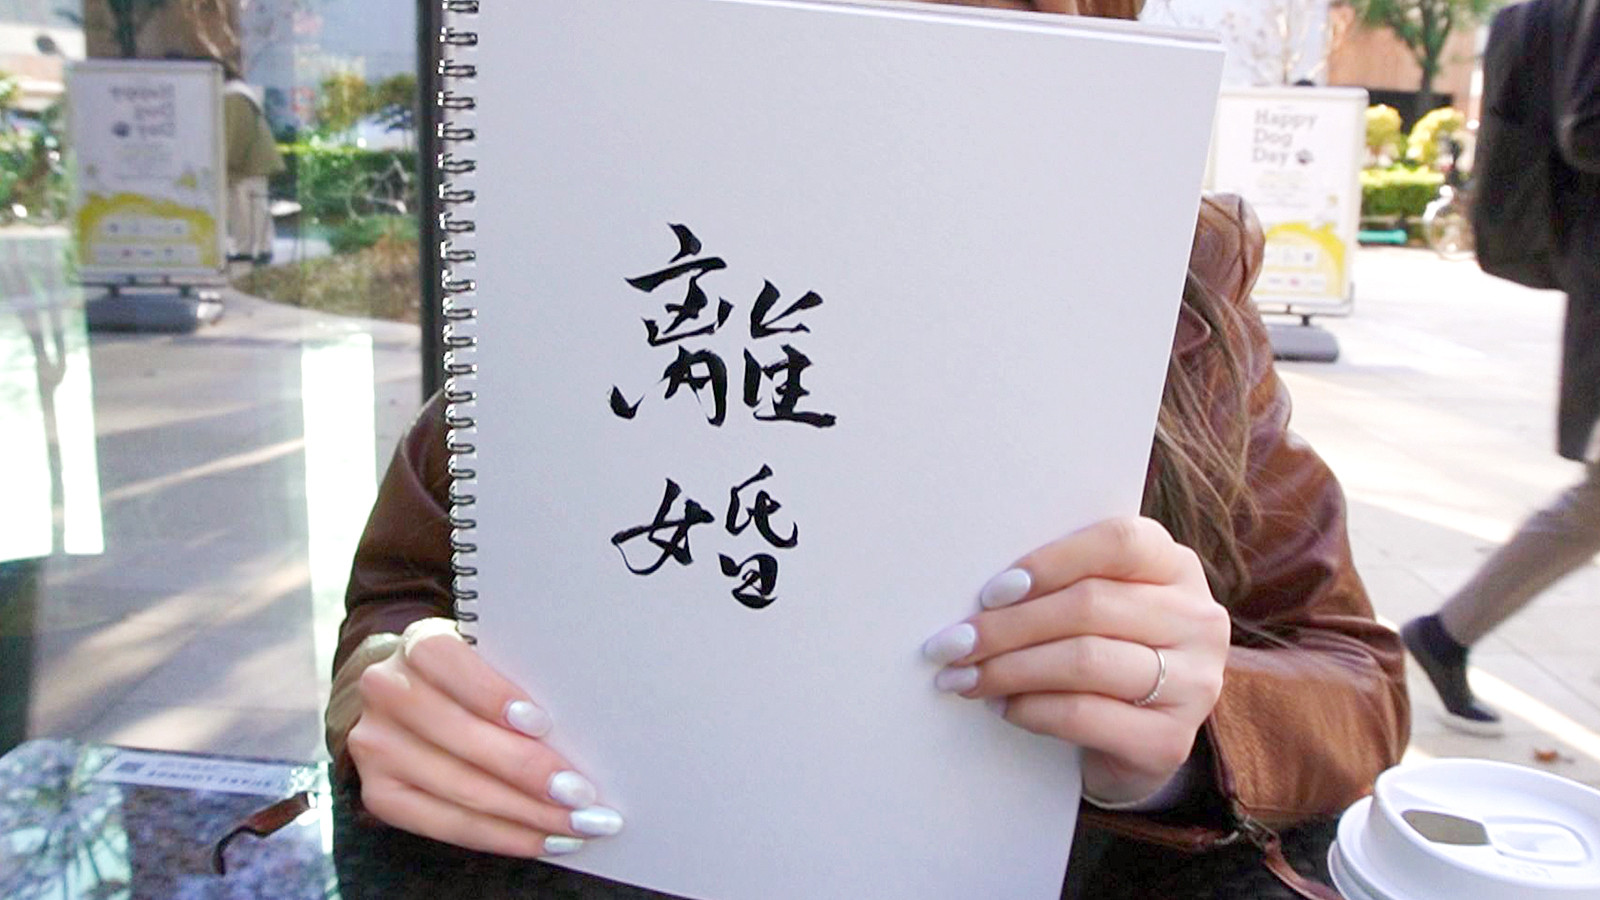 離
婚
Happy
Dog
Day